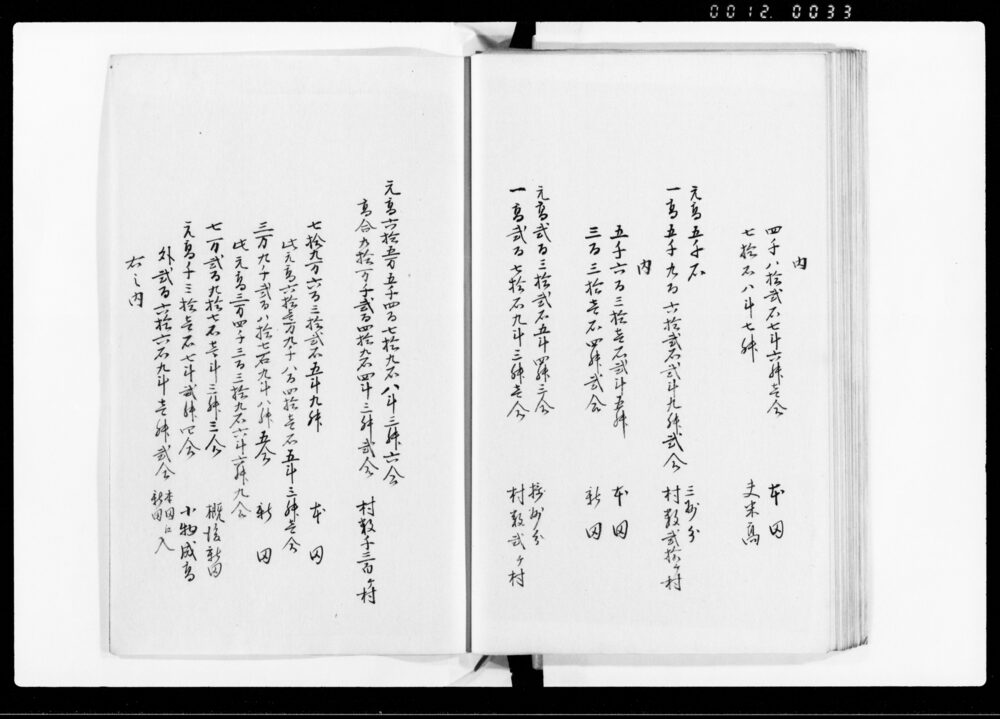 0012 0033
内
四千八拾弐石七斗六舛壱合 本田
七拾石八斗七舛 夫米高
元高五千石 三州分
一高五千九百六拾弐石弐斗九舛弐合 村数弐拾ケ村
内
五千六百三拾壱石弐斗五舛 本田
三百三拾壱石四舛弐合 新田
元高弐百三拾弐石五斗四舛三合 摂州分
一高弐百七拾石九斗三舛壱合 村数弐ケ村
元高六拾五万五千四百七拾九石八斗三舛六合
高合九拾万千弐百四拾九石四斗三舛弐合 村数千三百ケ村
七拾九万六百三拾弐石五斗九舛 本田
此元高六拾壱万九千八百四拾壱石五斗三舛壱合
三万九千弐百八拾七石九斗八舛五合 新田
此元高三万四千三百三拾九石六斗六舛九合
七万弐百九拾七石壱斗三舛三合 概後新田
元高千三拾壱石七斗弐舛四合 小物成高
外弐百六拾六石九斗壱舛弐合 本田新田に入
右之内